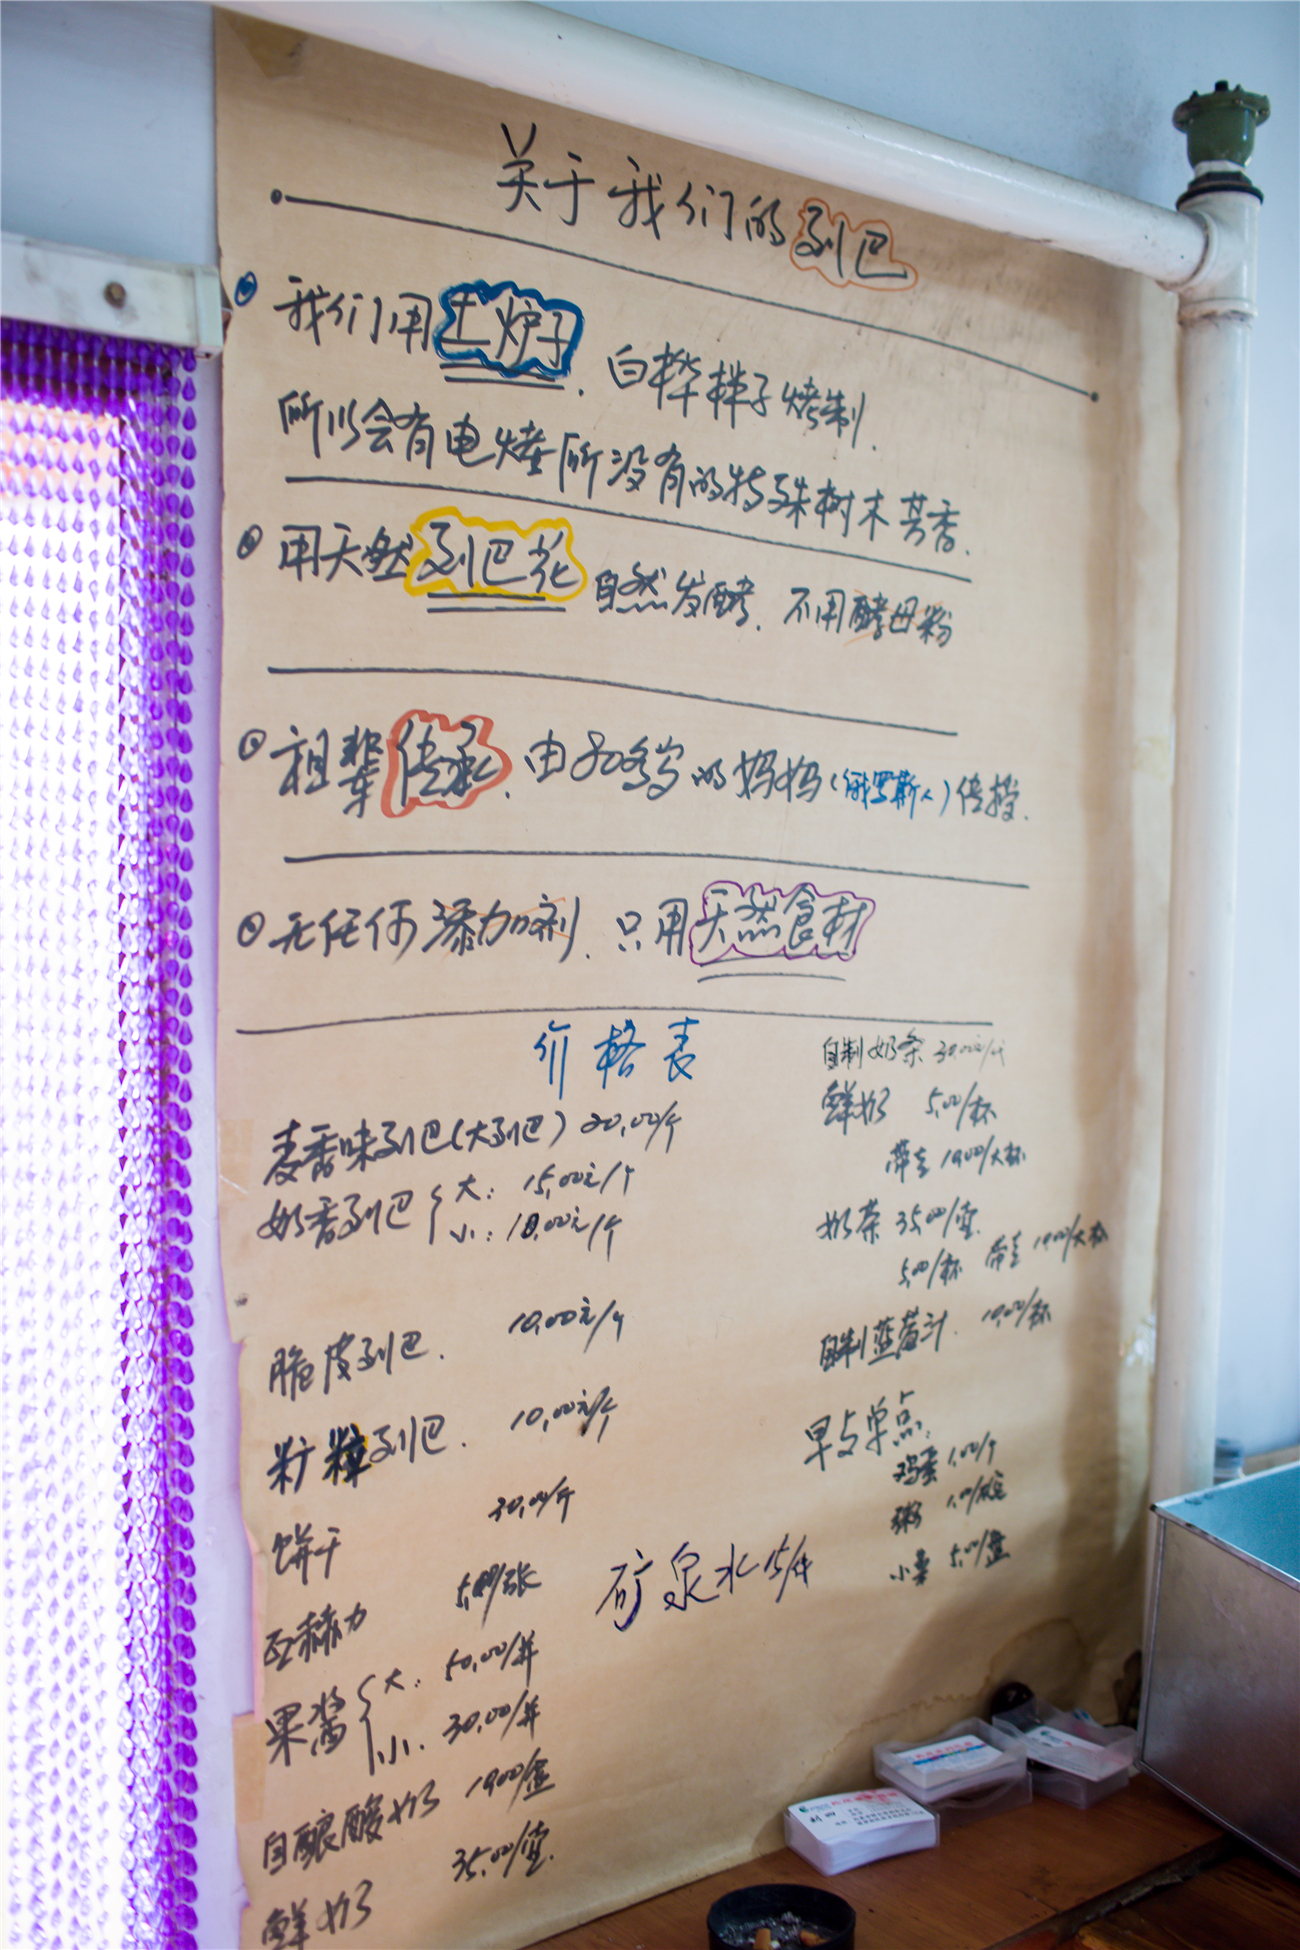 关于我们的列巴
我们用土炉子、白桦样子烤制.
所以会有电烤所没有的特殊树木芳香.
用天然列巴花自然发酵.不用酵母粉
祖辈传承.由80多岁的妈妈(俄罗斯人)传授.
无任何添加剂.只用天然食材
价格表
麦香味列巴(大列巴) 20,00/个
奶香列巴 大: 15,00元/个
小: 10,00元/个
脆皮列巴. 10,00元/个
籽粒列巴. 10,00元/个
饼干 30,00/斤
5,00/张
果酱 大: 50,00/瓶
小. 30,00/瓶
自酿酸奶 /盒
鲜奶 35,00/壶.
自制奶条 30,00元/
鲜奶 5,00/杯
带走 /大杯
奶茶 35,00/壶
5,00/杯 带走 /大杯
自制蓝莓汁. 10,00/杯
早点单点.
鸡蛋 1,00/个
粥 1,00/碗
小菜 5,00/盘
矿泉水15/件